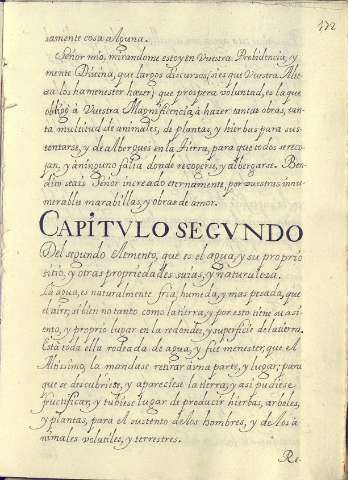 172
samente cosa alguna.
Señor mio, mirandome estoy en Vuestra Probidencia, y
mente Divina, que largos discursos, si es que Vuestra Alte
za los hamenester hacer; que prospera voluntad, es la que
obligò à Vuestra Magnificencia, à hazer tantas obras, tan
ta multitud de animales, de plantas, y hierbas para sus
tentarse, y de Albergues en la tierra, para que todos se reco
jan, y aninguno falta donde recogerse, y albergarse. Ben
dito seais Señor increado eternamente, por vuestras innu
merables marabillas, y obras de amor.
CAPITVLO SEGVNDO
Del segundo Elemento, que es el agua, y su proprio
sitio, y otras propriedades suias, y naturaleza.
La agua, es naturalmente fria, humeda, y mas pesada, que
el aire; si bien no tanto como la tierra, y por esto tiene su asi
ento, y proprio lugar en la redondez, y superficie de la tierra.
Està toda ella rodeada de agua, y fuè menester, que el
Altisimo, la mandase retirar à una parte, y lugar, para
que se descubriese, y apareciese la tierra; y asi pudiese
fructificar, y tubiese lugar de producir hierbas, arboles,
y plantas, para el sustento de los hombres, y de los à
nimales volatiles, y terrestres.
Re-